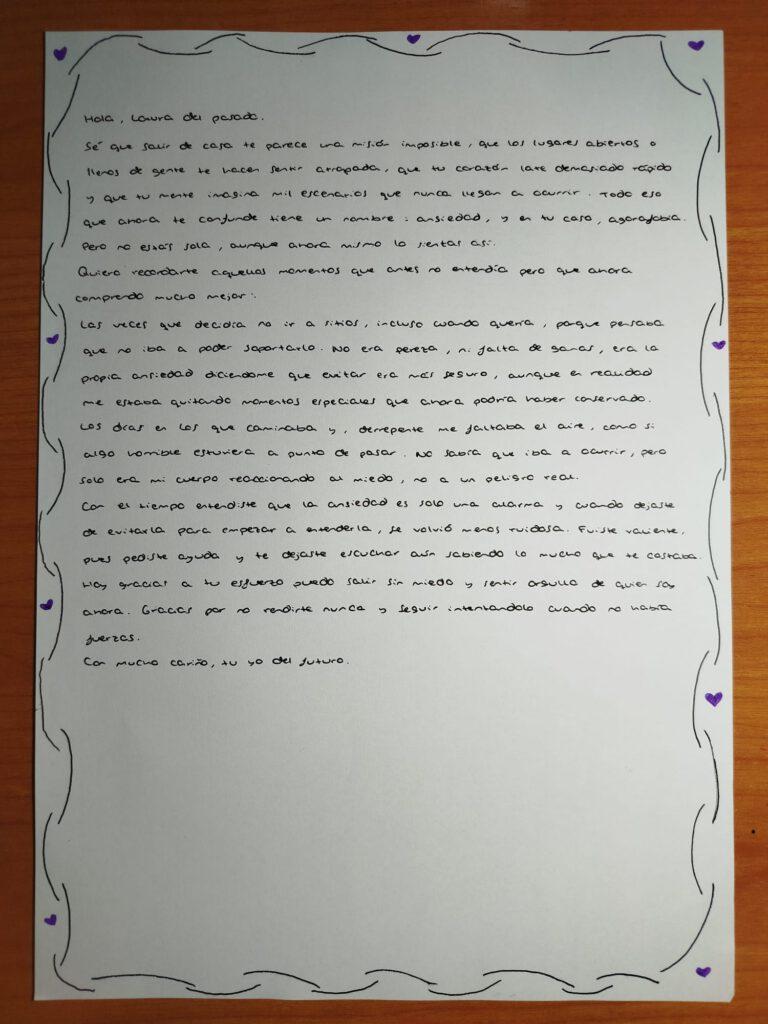 Hola, Laura del pasado.
Sé que salir de casa te parece una misión imposible, que los lugares abiertos o
llenos de gente te hacen sentir atrapada, que tu corazón late demasiado rápido
y que tu mente imagina mil escenarios que nunca llegan a ocurrir. Todo eso
que ahora te confunde tiene un nombre: ansiedad, y en tu caso, agorafobia.
Pero no estás sola, aunque ahora mismo lo sientas así.
Quiero recordarte aquellos momentos que antes no entendía pero que ahora
comprendo mucho mejor:
Las veces que decidía no ir a sitios, incluso cuando quería, porque pensaba
que no iba a poder soportarlo. No era pereza, ni falta de ganas, era la
propia ansiedad diciendome que evitar era más seguro, aunque en realidad
me estaba quitando momentos especiales que ahora podría haber conservado.
Los días en los que caminaba y, derrepente me faltaba el aire, como si
algo horrible estuviera a punto de pasar. No sabía que iba a ocurrir, pero
solo era mi cuerpo reaccionando al miedo, no a un peligro real.
Con el tiempo entendiste que la ansiedad es solo una alarma y cuando dejaste
de evitarla para empezar a entenderla, se volvió menos ruidosa. Fuiste valiente,
pues pediste ayuda y te dejaste escuchar aún sabiendo lo mucho que te costaba.
Hoy gracias a tu esfuerzo puedo salir sin miedo y sentir orgullo de quien soy
ahora. Gracias por no rendirte nunca y seguir intentandolo cuando no había
fuerzas.
Con mucho cariño, tu yo del futuro.